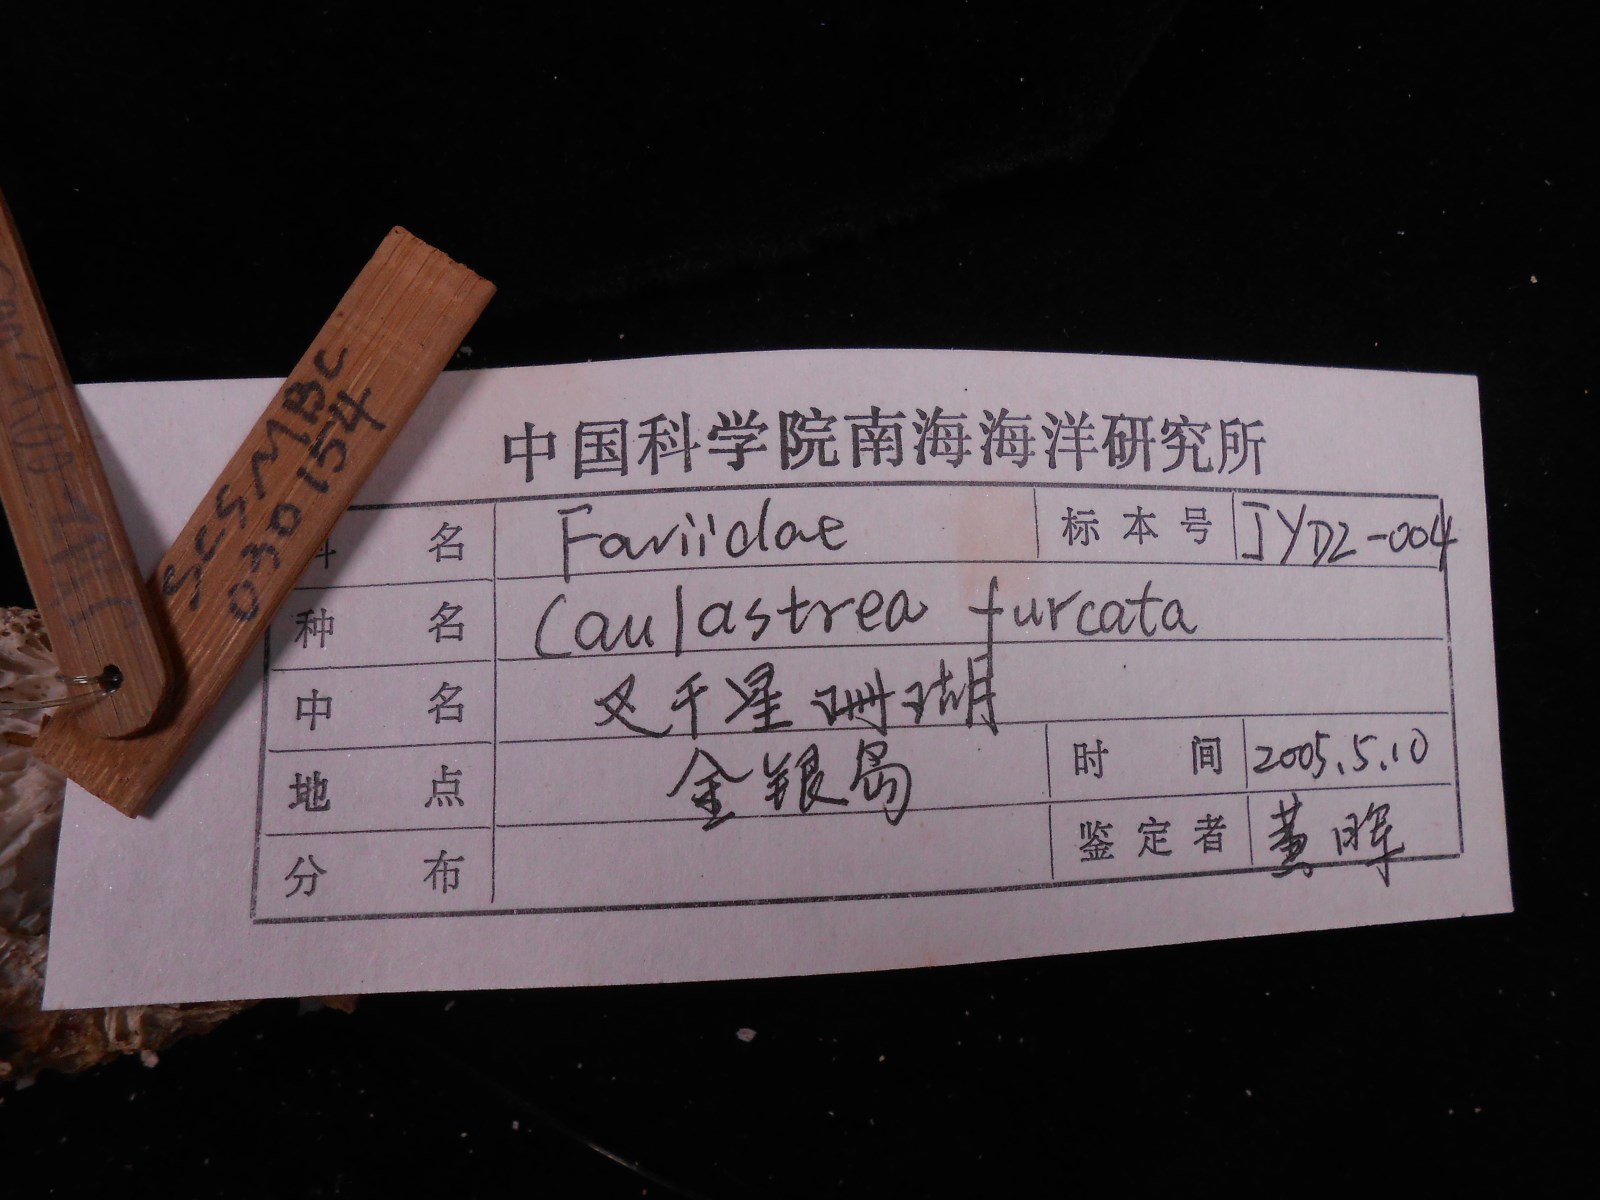 中国科学院南海海洋研究所
名 Faviidae 标本号 JYD2-004
种名 Caulastrea furcata
中名 叉干星珊瑚
地点 金银岛 时间 2005.5.10
分布 鉴定者 黄晖
SCSMBC
030154